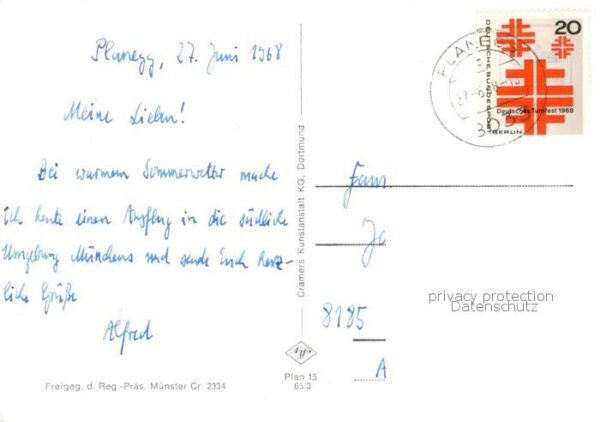 Planegg, 27. Juni 1968
Meine Lieben!
Bei warmem Sommerwetter mache
ich heute einen Ausflug in die südliche
Umgebung Münchens und sende Euch herz-
liche Grüße
Alfred
Freigeg. d. Reg.-Präs. Münster Cr. 2334
Cramers Kunstanstalt KG, Dortmund
Plan 15
65/3
20
DEUTSCHE BUNDESPOST
BERLIN
Deutsches Turnfest 1968
PLANEGG
Fam
Jo
8185
A
privacy protection
Datenschutz